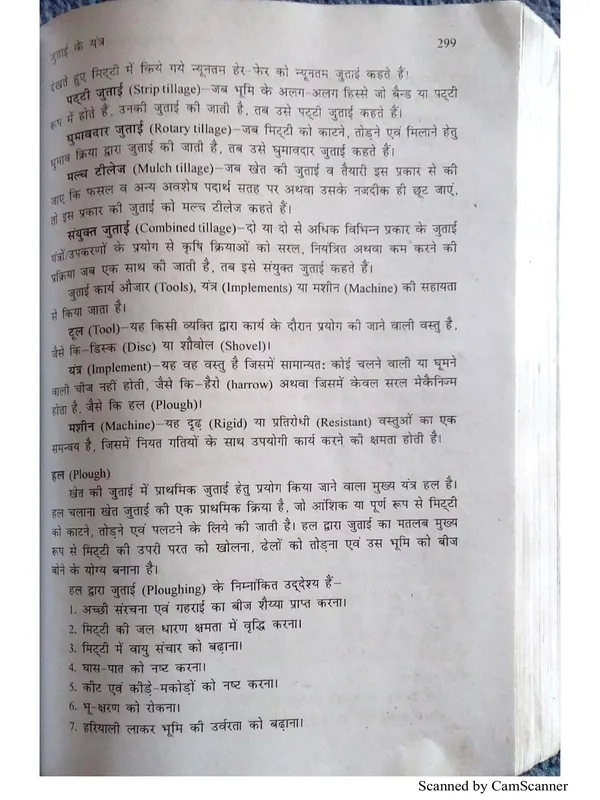 जुताई के यंत्र 299
देखते हुए मिट्टी में किये गये न्यूनतम हेर-फेर को न्यूनतम जुताई कहते हैं।
पट्टी जुताई (Strip tillage)–जब भूमि के अलग-अलग हिस्से जो बैन्ड या पट्टी
रूप में होते हैं, उनकी जुताई की जाती है, तब उसे पट्टी जुताई कहते हैं।
घुमावदार जुताई (Rotary tillage)–जब मिट्टी को काटने, तोड़ने एवं मिलाने हेतु
घुमाव क्रिया द्वारा जुताई की जाती है, तब उसे घुमावदार जुताई कहते हैं।
मल्च टीलेज (Mulch tillage)–जब खेत की जुताई व तैयारी इस प्रकार से की
जाए कि फसल व अन्य अवशेष पदार्थ सतह पर अथवा उसके नजदीक ही छूट जाएं,
तो इस प्रकार की जुताई को मल्च टीलेज कहते हैं।
संयुक्त जुताई (Combined tillage)–दो या दो से अधिक विभिन्न प्रकार के जुताई
यंत्रों/उपकरणों के प्रयोग से कृषि क्रियाओं को सरल, नियंत्रित अथवा कम करने की
प्रक्रिया जब एक साथ की जाती है, तब इसे संयुक्त जुताई कहते हैं।
जुताई कार्य औजार (Tools), यंत्र (Implements) या मशीन (Machine) की सहायता
से किया जाता है।
टूल (Tool)–यह किसी व्यक्ति द्वारा कार्य के दौरान प्रयोग की जाने वाली वस्तु है,
जैसे कि–डिस्क (Disc) या शौवोल (Shovel)।
यंत्र (Implement)–यह वह वस्तु है जिसमें सामान्यत: कोई चलने वाली या घूमने
वाली चीज नहीं होती, जैसे कि–हैरो (harrow) अथवा जिसमें केवल सरल मेकैनिज्म
होता है, जैसे कि हल (Plough)।
मशीन (Machine)–यह दृढ़ (Rigid) या प्रतिरोधी (Resistant) वस्तुओं का एक
समन्वय है, जिसमें नियत गतियों के साथ उपयोगी कार्य करने की क्षमता होती है।
हल (Plough)
खेत की जुताई में प्राथमिक जुताई हेतु प्रयोग किया जाने वाला मुख्य यंत्र हल है।
हल चलाना खेत जुताई की एक प्राथमिक क्रिया है, जो आंशिक या पूर्ण रूप से मिट्टी
को काटने, तोड़ने एवं पलटने के लिये की जाती है। हल द्वारा जुताई का मतलब मुख्य
रूप से मिट्टी की उपरी परत को खोलना, ढेलों को तोड़ना एवं उस भूमि को बीज
बोने के योग्य बनाना है।
हल द्वारा जुताई (Ploughing) के निम्नांकित उद्देश्य हैं–
1. अच्छी संरचना एवं गहराई का बीज शैय्या प्राप्त करना।
2. मिट्टी की जल धारण क्षमता में वृद्धि करना।
3. मिट्टी में वायु संचार को बढ़ाना।
4. घास-पात को नष्ट करना।
5. कीट एवं कीड़े-मकोड़ों को नष्ट करना।
6. भू-क्षरण को रोकना।
7. हरियाली लाकर भूमि की उर्वरता को बढ़ाना।
Scanned by CamScanner